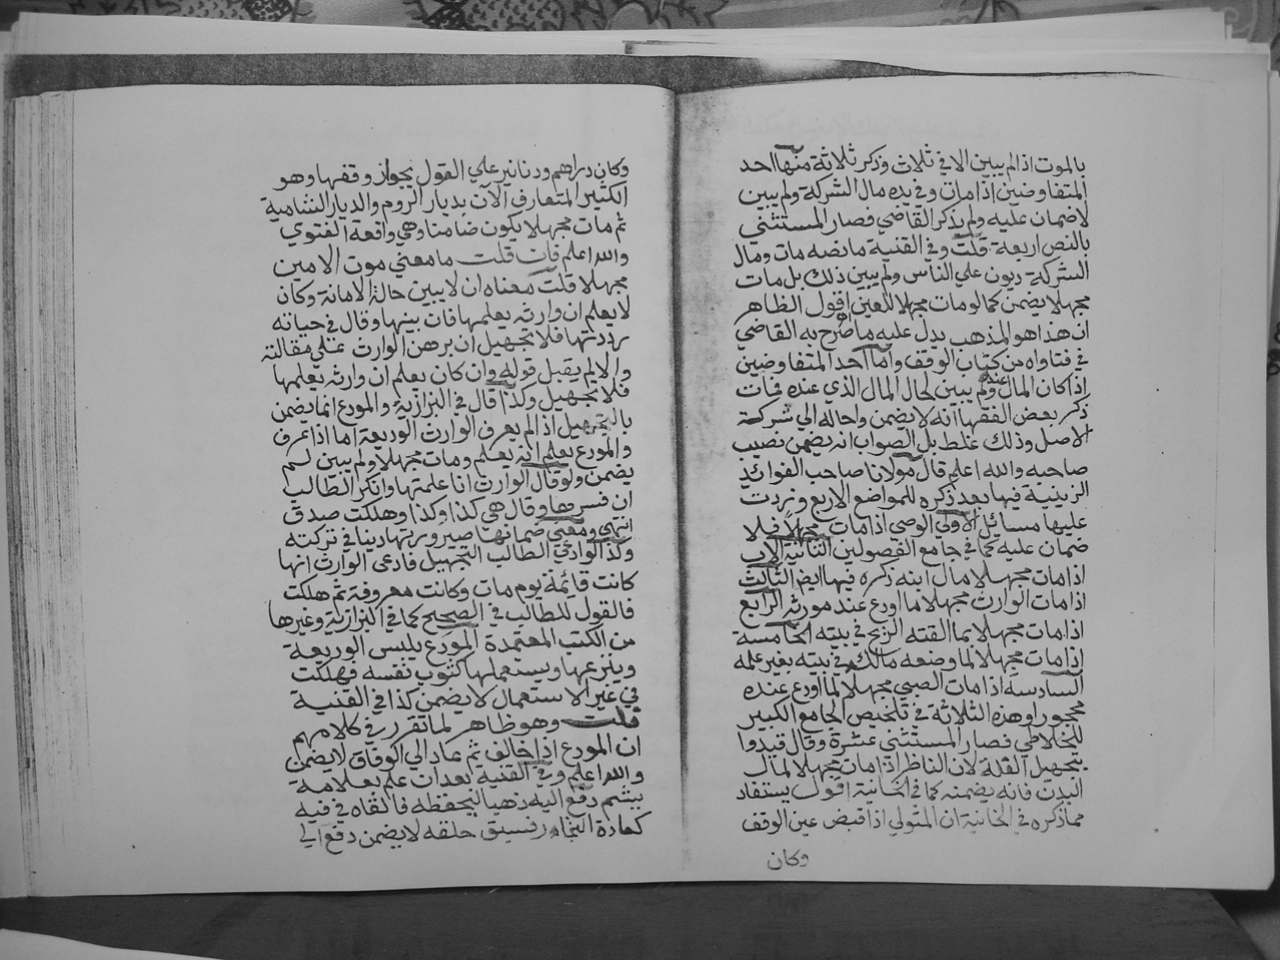 بالموت اذا لم يبين الا في ثلاث وذكر ثلاثة منها احد
المتفاوضين اذا مات وفي يده مال الشركة ولم يبين
لا ضمان عليه ولم يذكر القاضي فصار المستثني
بالنص اربعة قلت وفي القنية ما نصه مات ومال
الشركة ديون علي الناس ولم يبين ذلك بل مات
مجهلا يضمن كما لو مات مجهلا للعين اقول الظاهر
ان هذا هو المذهب يدل عليه ما صرح به القاضي
في فتاواه من كتاب الوقف واما احد المتفاوضين
اذا كان المال عنده ولم يبين لحال المال الذي عنده فمات
ذكر بعض الفقها انه لا يضمن واحاله الي شركة
الاصل وذلك غلط بل الصواب انه يضمن نصيب
صاحبه والله اعلم قال مولانا صاحب الفوائد
الزينية فيها بعد ذكره للمواضع الاربع وزدت
عليها مسائل الاولي الوصي اذا مات مجهلا فلا
ضمان عليه كما في جامع الفصولين الثانية الاب
اذا مات مجهلا مال ابنه ذكره فيها ايضا الثالث
اذا مات الوارث مجهلا ما اودع عند مورثه الرابع
اذا مات مجهلا بما القته الريح في بيته الخامسة
اذا مات مجهلا لما وضعه مالك في بيته بغير علمه
السادسة اذا مات الصبي مجهلا لما اودع عنده
محجورا وهذه الثلاثة في تلخيص الجامع الكبير
للخلاطي فصار المستثني عشرة وقال قيدوا
بتجهيل الغلة لان الناظر اذا مات مجهلا لمال
البدن فانه يضمنه كما في الخانية اقول يستفاد
مما ذكره في الخانية ان المتولي اذا قبض عين الوقف
وكان
وكان دراهم ودنانير علي القول بجواز وقفها وهو
الكثير المتعارف الآن بديار الروم والديار الشامية
ثم مات مجهلا يكون ضامنا وهي واقعة الفتوي
والله اعلم فان قلت ما معني موت الامين
مجهلا قلت معناه ان لا يبين حالة الامانة وكان
لا يعلم ان وارثه يعلمها فان بينها وقال في حياته
رددتها فلا تجهيل ان برهن الوارث علي مقالته
والا لم يقبل قوله وان كان يعلم ان وارثه يعلمها
فلا تجهيل وكذا قال في البزازية والمودع انما يضمن
بالتجهيل اذا لم يعرف الوارث الوديعة اما اذا عرف
والمودع يعلم انه يعلم ومات مجهلا ولم يبين لم
يضمن ولو قال الوارث انا علمتها وانكر الطالب
ان فسرها وقال هي كذا وكذا وهلكت صدق
انتهي ومعني ضمانها صيرورتها دينا في تركته
وكذا لو ادعي الطالب التجهيل فادعي الوارث انها
كانت قائمة يوم مات وكانت معروفة ثم هلكت
فالقول للطالب في الصحيح كما في البزازية وغيرها
من الكتب المعتمدة المودع يلبس الوديعة
وينزعها ويستعملها كثوب نفسه فهلكت
في غير الاستعمال لا يضمن كذا في القنية
قلت وهو ظاهر لما تقرر في كلامهم
ان المودع اذا خالف ثم عاد الي الوفاق لا يضمن
والله اعلم وفي القنية بعد ان علم بعلامة
دفع اليه ذهبا ليحفظه فالقاه في فيه
كعادة التجار فسبق حلقه لا يضمن دفع الي